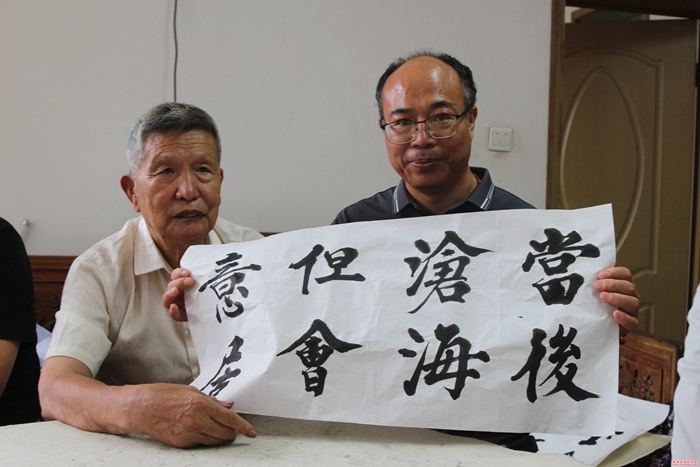 當後
滄海
但會
意